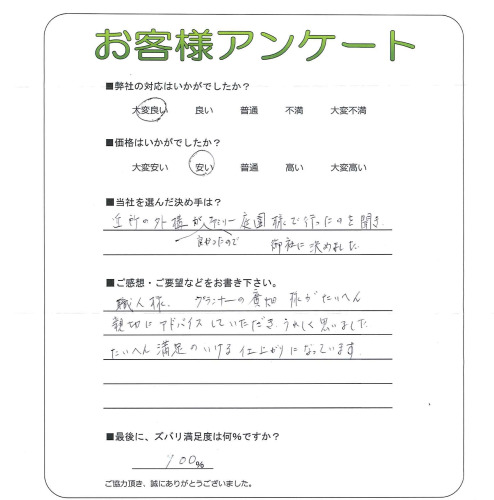 お客様アンケート
■弊社の対応はいかがでしたか？
大変良い 良い 普通 不満 大変不満
■価格はいかがでしたか？
大変安い 安い 普通 高い 大変高い
■当社を選んだ決め手は？
近所の外構が ファミリー庭園様で行ったのを聞き
良かったので 御社に決めました
■ご感想・ご要望などをお書き下さい。
職人様、プランナーの廣畑様がたいへん
親切にアドバイスしていただき、うれしく思いました
たいへん満足のいける仕上がりになっています。
■最後に、ズバリ満足度は何％ですか？
100％
ご協力頂き、誠にありがとうございました。